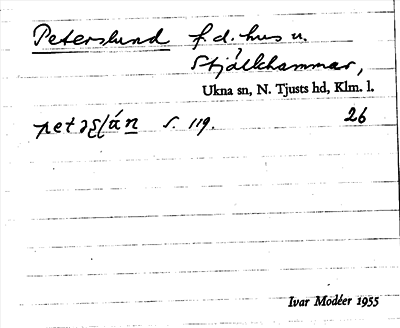 Peterslund f.d. hus u.
Stjälkhammar,
Ukna sn, N. Tjusts hd, Klm. l.
s. 119. 26
Ivar Modéer 1955